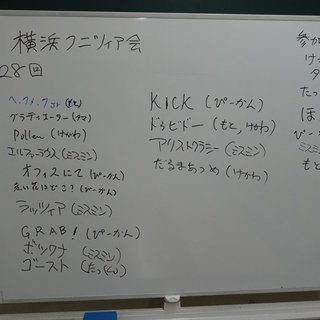 横浜クニツィア会
28回
ヘックメックJr (もと)
グラディエーター (タマ)
Pollen (けがわ)
エルフェラウス (ミスミン)
オフィスにて (ぴーかん)
赤い花はどこ? (ぴーかん)
ラッツィア (ミスミン)
GRAB! (ぴーかん)
ボツワナ (ミスミン)
ゴースト
KICK (ぴーかん)
ドゥビドー (もと, けがわ)
アリストクラシー (ミスミン)
だるまあつめ (けがわ)
参が
け
タ
たっ
ほ
ぴーか
ミスミ
もと